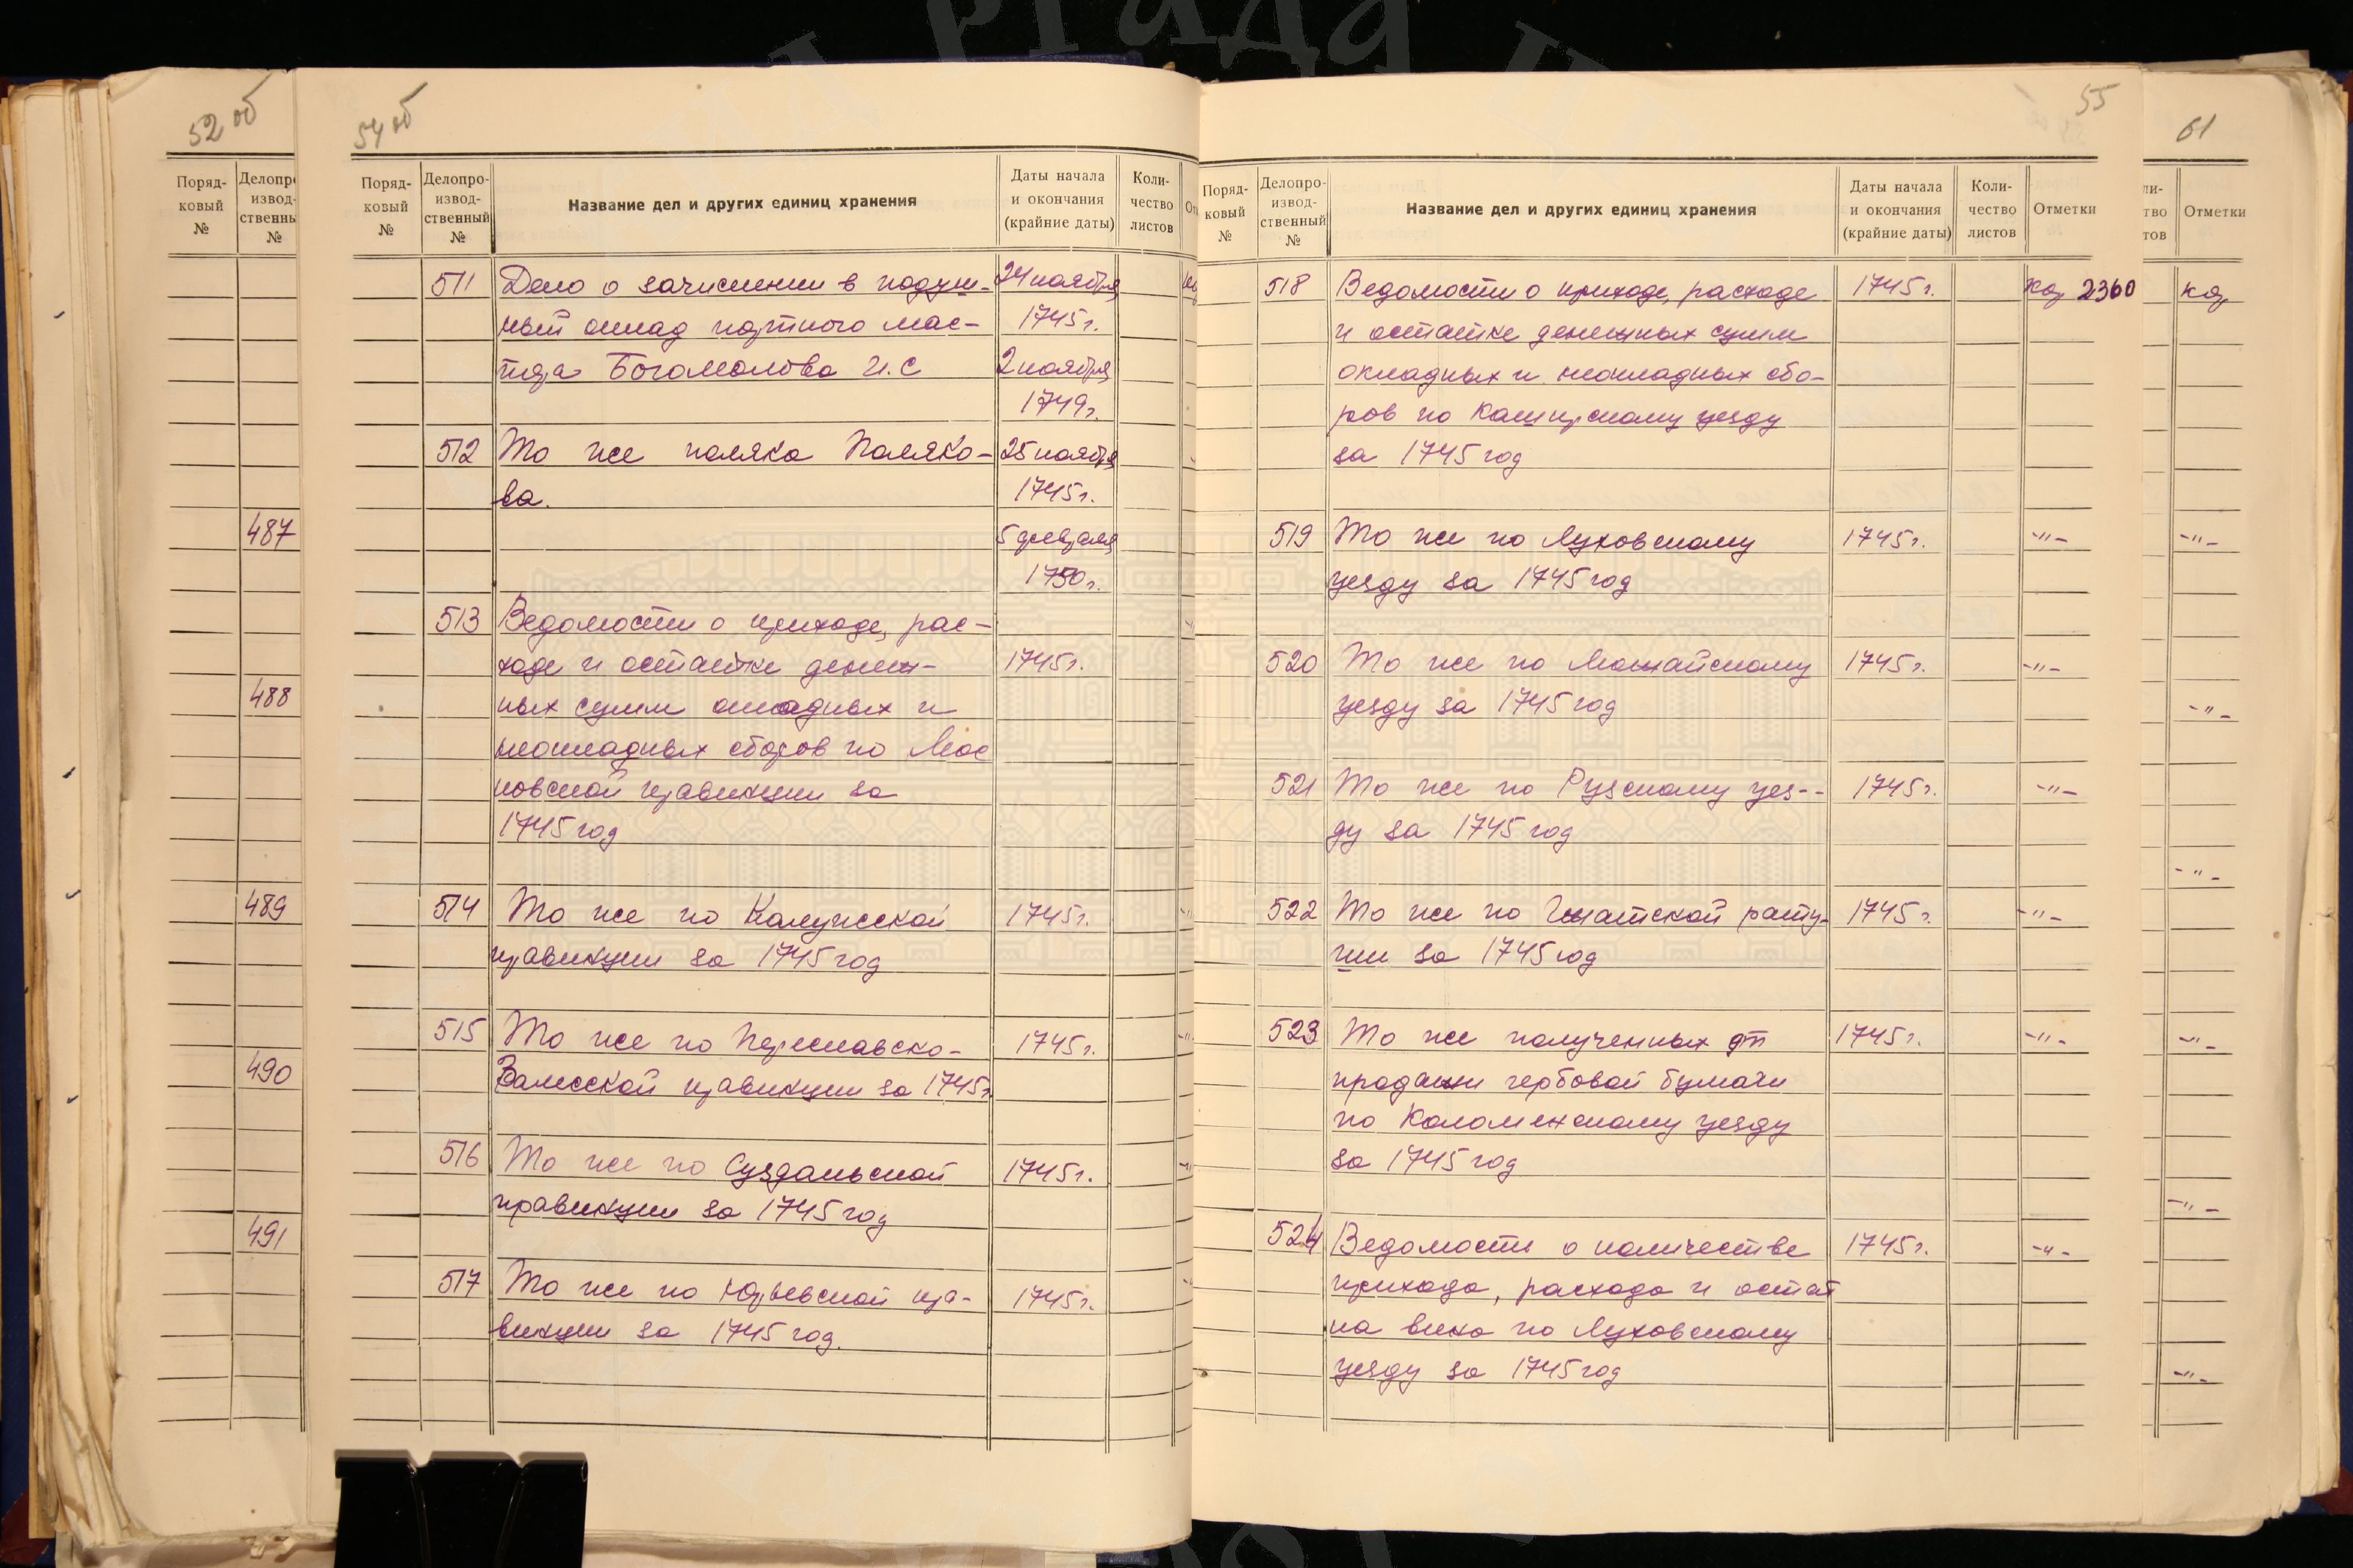 52 об
Поряд-
ковый
№
Делопр
извод-
ственны
№
487
488
489
490
491
54 об
Поряд-
ковый
№
Делопро-
извод-
ственный
№
Название дел и других единиц хранения
Даты начала
и окончания
(крайние даты)
Коли-
чество
листов
511 Дело о зачислении в подуш- 24 ноября
ный оклад портного мас- 1745 г.
тера Богомолова И.С 2 ноября
1749 г.
512 То же поляка Поляко- 25 ноября
ва. 1745 г.
5 февраля
1750 г.
513 Ведомости о приходе, рас-
ходе и остатке денеж- 1745 г.
ных сумм окладных и
неокладных сборов по Мос
ковской правинции за
1745 год
514 То же по Калужской 1745 г.
правинции за 1745 год
515 То же по Переславско- 1745 г.
Залесской правинции за 1745 г
516 То же по Суздальской 1745 г.
правинции за 1745 год
517 То же по Юрьевской пра- 1745 г.
винции за 1745 год.
55
Поряд-
ковый
№
Делопро-
извод-
ственный
№
Название дел и других единиц хранения
Даты начала
и окончания
(крайние даты)
Коли-
чество
листов
Отметки
518 Ведомости о приходе, расходе 1745 г. 2360
и остатке денежных сумм
окладных и неокладных сбо-
ров по Каширскому уезду
за 1745 год
519 То же по Луховскому 1745 г. -"-
уезду за 1745 год
520 То же по Можайскому 1745 г. -"-
уезду за 1745 год
521 То же по Рузскому уез-- 1745 г. -"-
ду за 1745 год
522 То же по Гжатской рату- 1745 г. -"-
ши за 1745 год
523 То же полученных от 1745 г. -"-
продажи гербовой бумаги
по Коломенскому уезду
за 1745 год
524 Ведомость о количестве 1745 г. -"-
прихода, расхода и остат
ка вина по Луховскому
уезду за 1745 год
61
ли-
тво
тов
Отметки
-"-
-"-
-"-
-"-
-"-
-"-